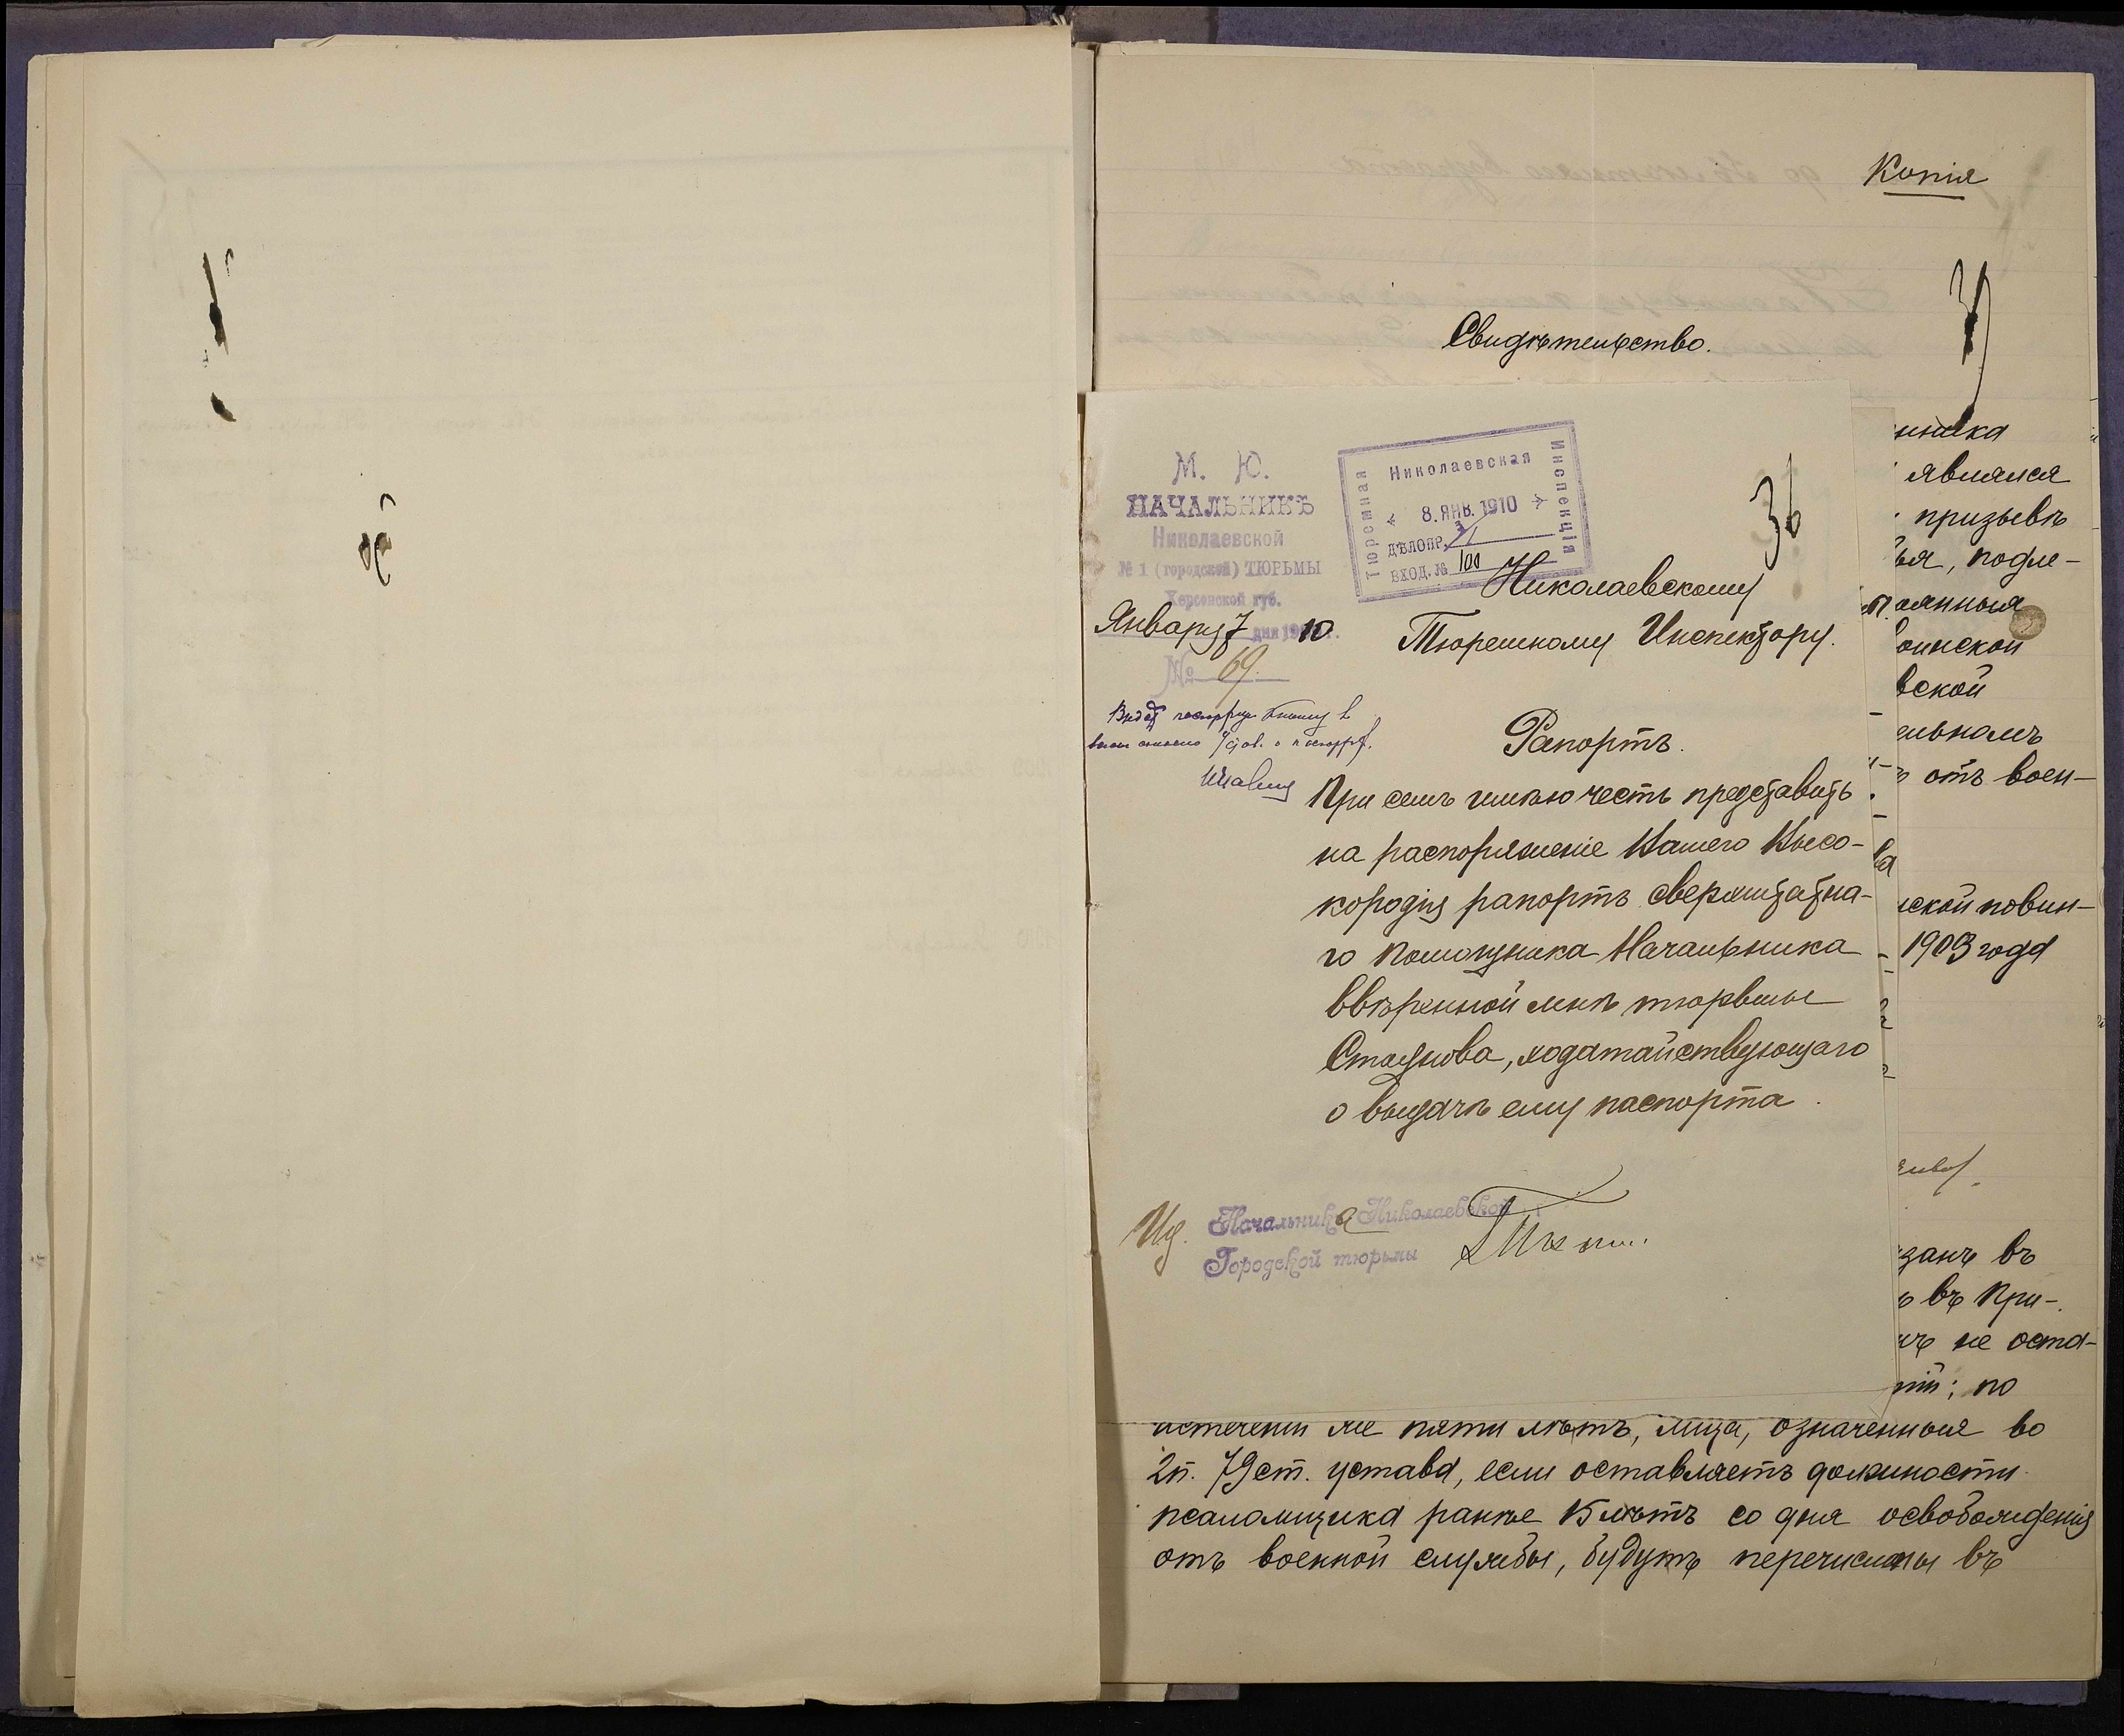 Копія
Свидѣтельство.
36
М. Ю.
НАЧАЛЬНИКЪ
Николаевской
№ 1 (городской) ТЮРЬМЫ
Херсонской губ.
Января 7 дня 1910 г.
№ 69.
Николаевская
Тюремная
Инспекція
8. ЯНВ. 1910
ДѢЛОПР. 3/
ВХОД. № 100
Николаевскому
Тюремному Инспектору.
Рапортъ.
При семъ имѣю честь представить
на распоряженіе Вашего Высо-
кородія рапортъ сверхштатна-
го Помощника Начальника
ввѣренной мнѣ тюрьмы
ходатайствующаго
о выдачѣ ему паспорта.
Ид. Начальника Николаевской
Городской тюрьмы
ника
являлся
призывѣ
ья, подле-
оянныя
оинской
вской
альномъ
отъ воен-
ской повин-
1903 года
занъ въ
въ При-
не оста-
тіи; по
истеченіи же пяти лѣтъ, лица, означенныя во
2п. 79 ст. устава, если оставляетъ должности
псаломщика ранѣе 5 лѣтъ со дня освобожденія
отъ военной службы, будутъ перечислены въ